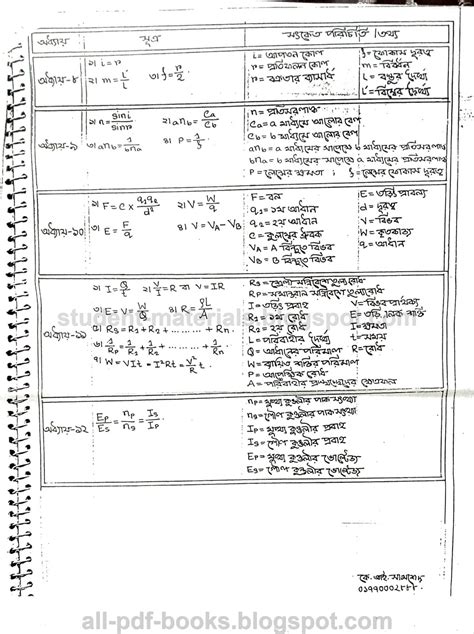 অধ্যায় সূত্র সংকেত পরিচিতি / তথ্য
অধ্যায়-৮
১) i = r
২) m = L'/L ৩) f = r/2
i = আপতন কোণ
r = প্রতিফলন কোণ
r = বক্রতার ব্যাসার্ধ
f = ফোকাস দূরত্ব
m = বিবর্ধন
L = বস্তুর দৈর্ঘ্য
L' = বিম্বের দৈর্ঘ্য
অধ্যায়-৯
১) n = sini/sinr ২) anb = Ca/Cb
৩) anb = 1/bna ৪) P = 1/f
n = প্রতিসরণাঙ্ক
Ca = a মাধ্যমে আলোর বেগ
Cb = b মাধ্যমে আলোর বেগ
anb = a মাধ্যমের সাপেক্ষে b মাধ্যমের প্রতিসরাঙ্ক
bna = b মাধ্যমের সাপেক্ষে a মাধ্যমের প্রতিসরাঙ্ক
P = লেন্সের ক্ষমতা ; f = লেন্সের ফোকাস দূরত্ব
অধ্যায়-১০
১) F = C × q₁q₂/d² ২) V = W/q
৩) E = F/q ৪) V = VA - VB
F = বল
q₁ = ১ম আধান
q₂ = ২য় আধান
C = কুলম্বের ধ্রুবক
VA = A বিন্দুতে বিভব
VB = B বিন্দুতে বিভব
E = তড়িৎ প্রাবল্য
d = দূরত্ব
V = বিভব
W = কৃতকাজ
q = আধান
অধ্যায়-১১
১) I = Q/t ২) V/I = R বা V = IR
৩) E = V = W/Q ৪) R = ρL/A
৫) Rs = R₁ + R₂ + ...... + Rn.
৬) 1/Rp = 1/R₁ + 1/R₂ + ......... + 1/Rn
৭) W = VIt = I²Rt = V²/R t.
Rs = শ্রেণী সন্নিবেশে তুল্যরোধ
Rp = সমান্তরাল সন্নিবেশে তুল্যরোধ
I = তড়িৎ প্রবাহ
R₁ = ১ম রোধ
R₂ = ২য় রোধ
L = পরিবাহীর দৈর্ঘ্য
Q = আধানের পরিমাণ
W = ব্যয়িত শক্তির পরিমাণ
ρ = আপেক্ষিক রোধ
A = পরিবাহীর প্রস্থচ্ছেদের ক্ষেত্রফল
V = বিভব পার্থক্য
E = তড়িচ্চালক শক্তি
t = সময়
R = রোধ
অধ্যায়-১২
Ep/Es = np/ns = Is/Ip
np = মুখ্য কুণ্ডলীর পাকসংখ্যা
ns = গৌণ কুণ্ডলীর পাকসংখ্যা
Ip = মুখ্য কুণ্ডলীর প্রবাহ
Is = গৌণ কুণ্ডলীর প্রবাহ
Ep = মুখ্য কুণ্ডলীর ভোল্টেজ
Es = গৌণ কুণ্ডলীর ভোল্টেজ
all-pdf-books.blogspot.com